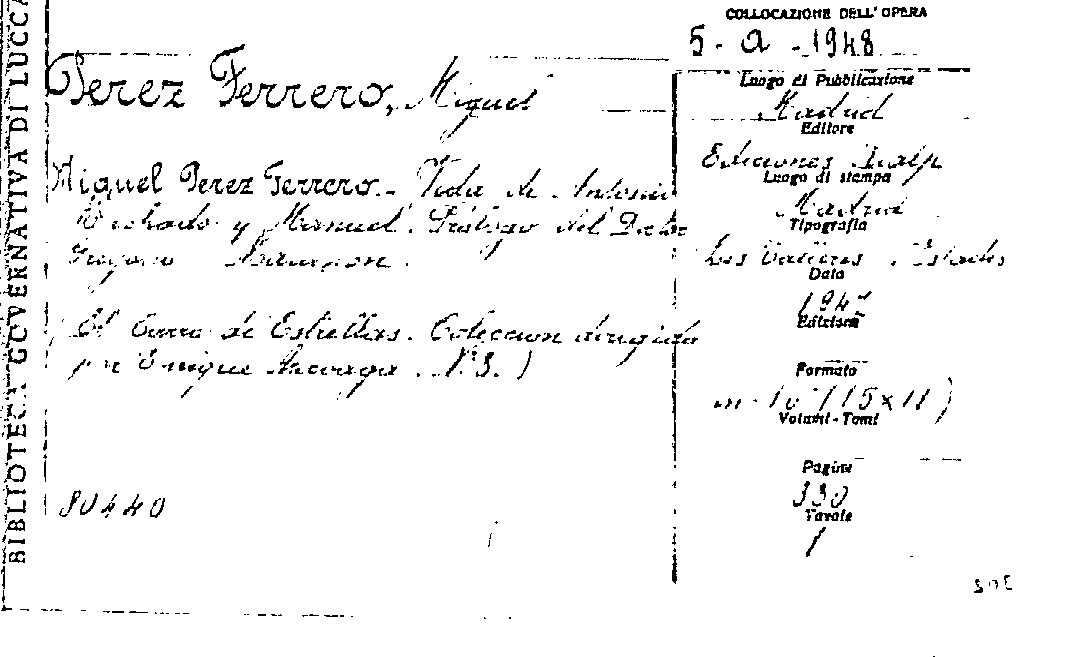 BIBLIOTECA GOVERNATIVA DI LUCCA
COLLOCAZIONE DELL'OPERA
5 - a - 1948
Perez Ferrero, Miguel
Luogo di Pubblicazione
Madrid
Editore
Ediciones Rialp
Luogo di stampa
Madrid
Tipografia
Los
Data
Edizione
Formato
(15x11)
Volumi - Tomi
Pagine
330
Tavole
1
Miguel Perez Ferrero. - Vida de Antonio
Machado y Manuel. Prólogo del Doctor
Gregorio Marañon.
(El Carro de Estrellas. Coleccion dirigida
por Enrique Azcoaga. N.° 3.)
80440